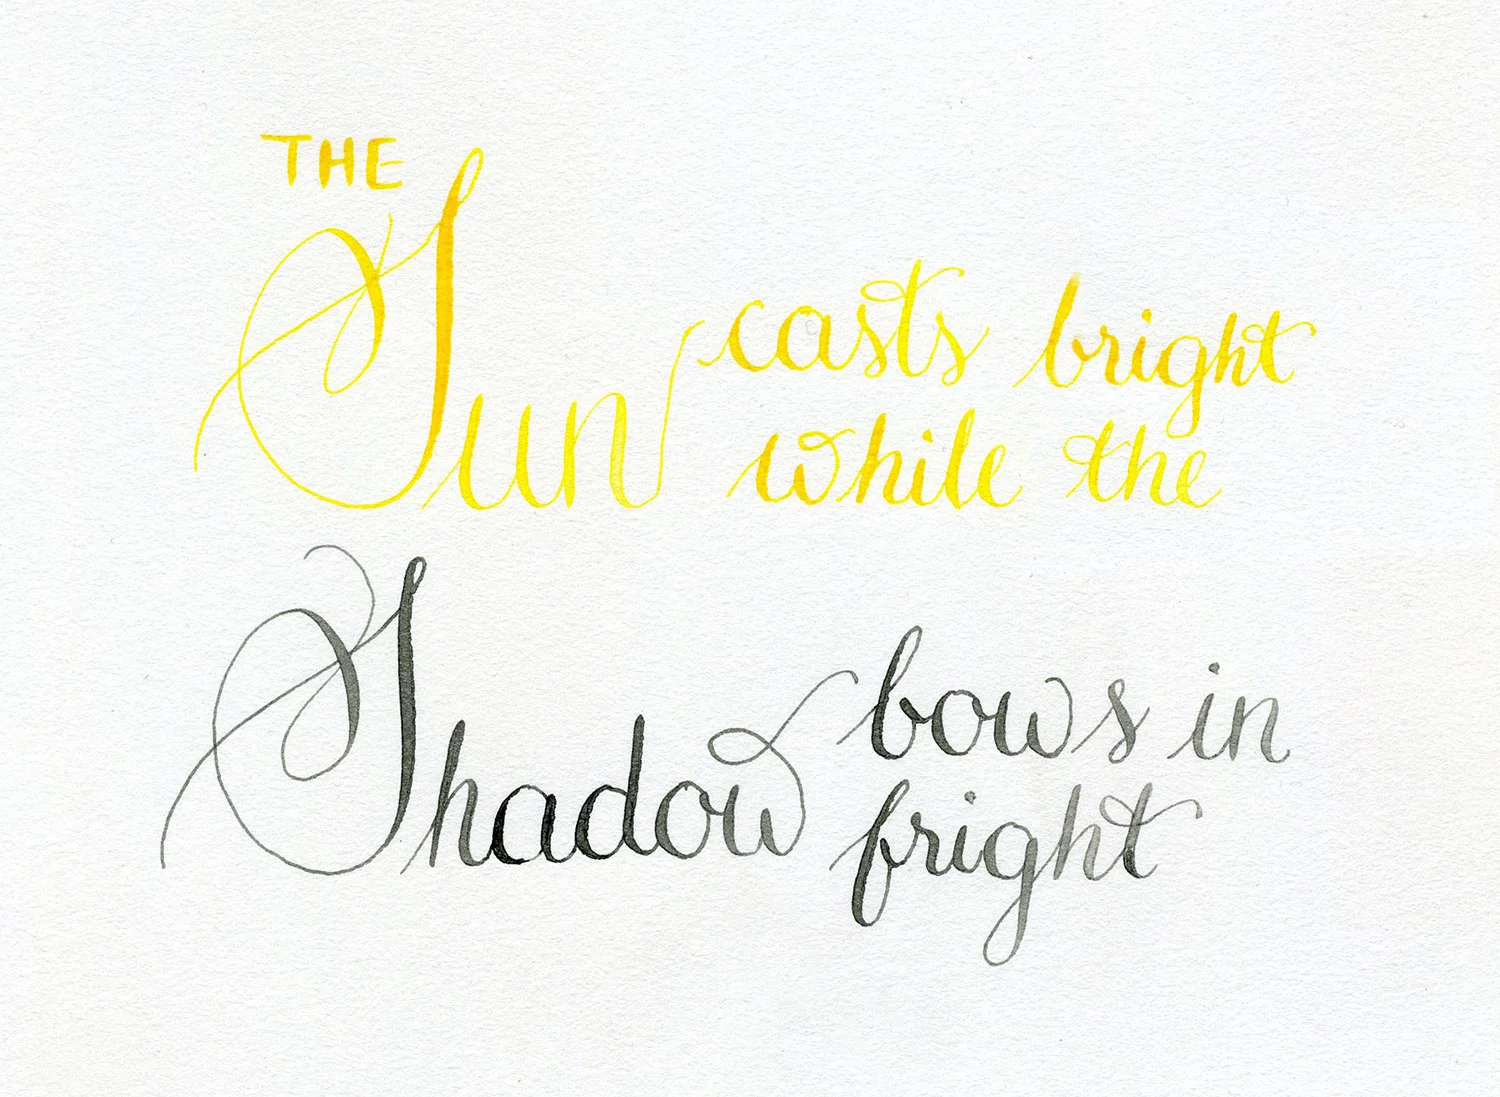 THE
Sun casts bright
while the
Shadow bows in
fright